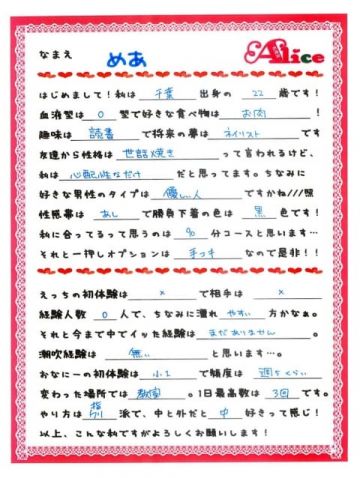 なまえ めあ
Alice
はじめまして!私は 千葉 出身の 22 歳です!
血液型は O 型で好きな食べ物は お肉 !
趣味は 読書 で将来の夢は ネイリスト です
友達から性格は 世話焼き って言われるけど、
私は 心配性なだけ だと思ってます。ちなみに
好きな男性のタイプは 優しい人 ですかね///照
性感帯は あし で勝負下着の色は 黒 色です!
私に合ってるって思うのは 90 分コースと思います…
それと一押しオプションは 手コキ なので是非!!
えっちの初体験は × で相手は ×
経験人数 0 人で、ちなみに濡れ やすい 方かなぁ。
それと今まで中でイッた経験は まだありません 。
潮吹経験は 無い と思います…。
変わった場所では 教室 。1日最高数は 3回 です。
やり方は 指 派で、中と外だと 中 好きって感じ!
以上、こんな私ですがよろしくお願いします!